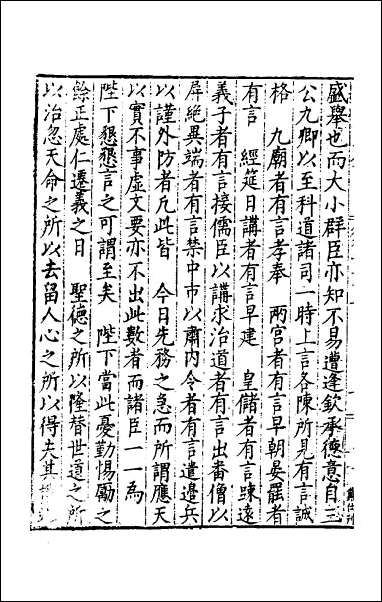 盛舉也而大小群臣亦知不易遭逢欽承德意自三
公九卿以至科道諸司一時上言各陳所見有言誠
格　九廟者有言孝奉　兩宮者有言早朝晏罷者
有言　經筵日講者有言早建　皇儲者有言踈遠
義子者有言接儒臣以講求治道者有言出畨僧以
屏絕異端者有言禁中市以肅内令者有言遣邉兵
以謹外防者凡此皆　今日先務之急而所謂應天
以實不事虛文要亦不出此數者而諸臣一一為
陛下懇懇言之可謂至矣　陛下當此憂勤惕勵之
餘正處仁遷義之日　聖德之所以隆替世道之所
以治忽天命之所以去留人心之所以得失其